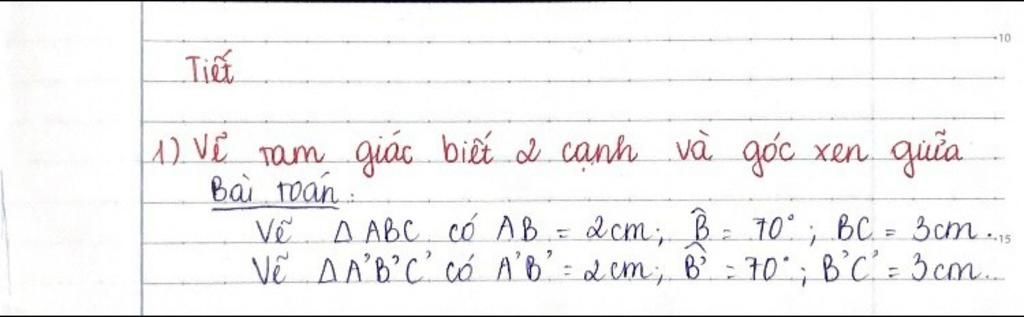 10
Tiết
1) Vẽ tam giác biết 2 cạnh và góc xen giữa
Bài toán:
Vẽ Δ ABC có AB = 2cm; B̂ = 70°; BC = 3cm.
15
Vẽ ΔA'B'C' có A'B' = 2cm; B̂' = 70°; B'C' = 3cm.